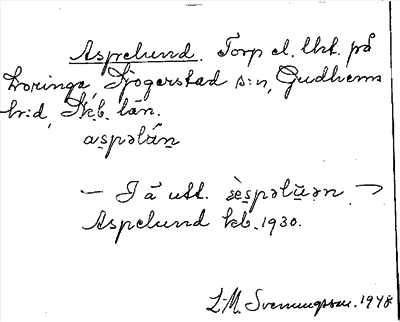 Aspelund. Torp el. lht. på
Loringa, Sjogerstad s:n, Gudhems
hr:d, Skb. län.
aspəlún
— I ä utt. səpəlŭən
Aspelund kb. 1930.
L-M. Svenungsson. 1948